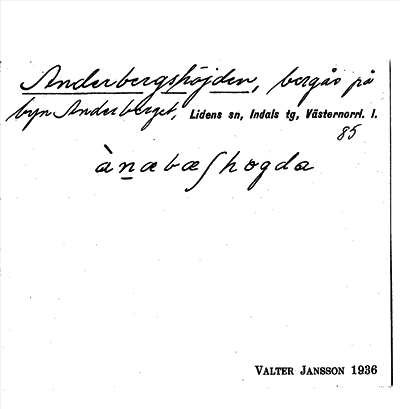 Anderbergshöjden, bergås på
byn Anderberget, Lidens sn, Indals tg, Västernorrl. l.
85
ànæbæʃhogda
VALTER JANSSON 1936